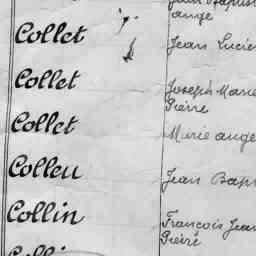 ange
Collet Jean Lucien
Collet Joseph Marie
Pierre
Collet Marie ange
Colleu Jean Bap
Collin François Jean
Pierre